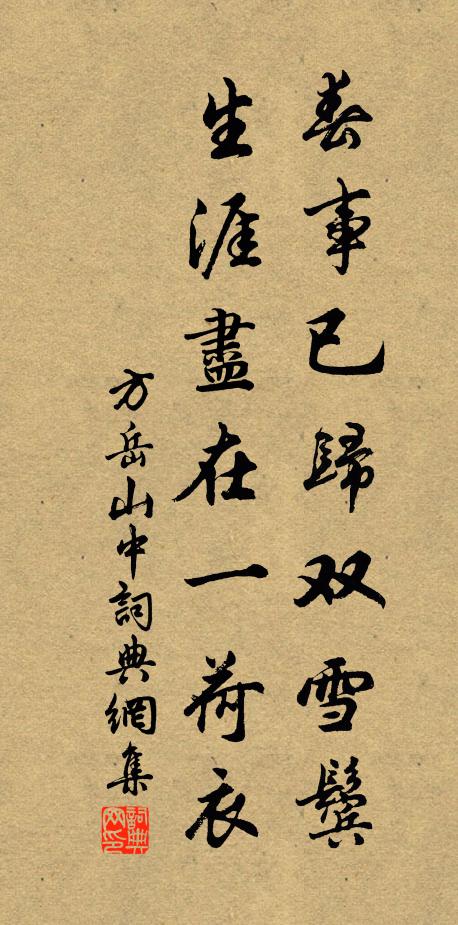 春事已歸双雪鬢
生涯盡在一荷衣
方岳山中詞典網集
詞典网印